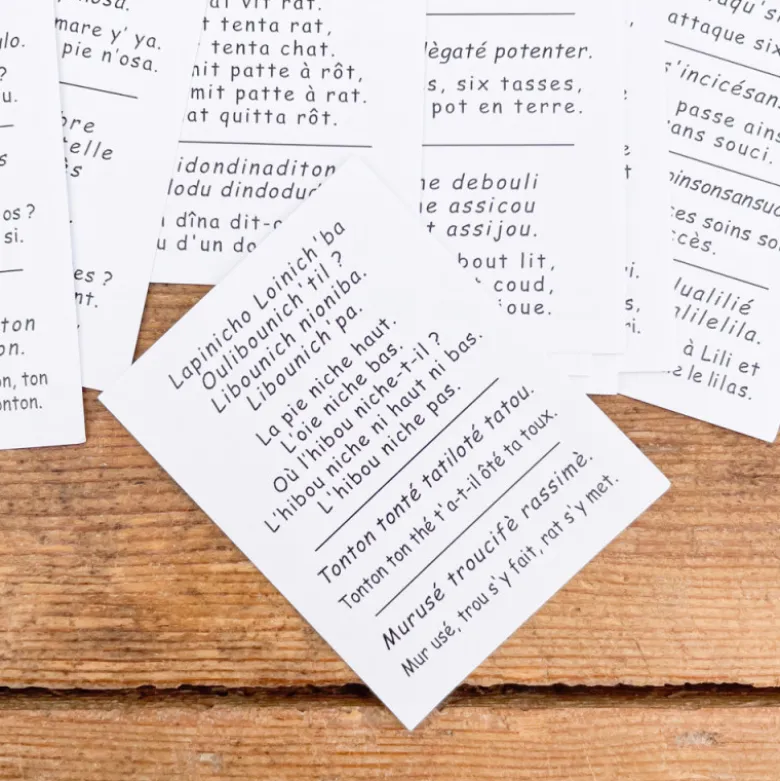 osa.
mare y' ya.
pie n'osa.
ylo.
?
u.
os ?
si.
ton
on.
on, ton
onton.
bre
telle
es ?
nt.
vit rat.
tenta rat,
tenta chat.
mit patte à rôt,
mit patte à rat.
at quitta rôt.
idondinaditon
lodu dindodu
dîna dit-
d'un do
lègaté potenter.
s, six tasses,
pot en terre.
ne debouli
ne assicou
t assijou.
bout lit,
coud,
joue.
s,
ri.
qu's
attaque six
s'incicésan
passe ains
ans souci.
oinsonsansuc
ces soins so
ccès.
lualilié
lilelila.
à Lili et
le lilas.
Lapinicho Loinich'ba
Oulibounich'til ?
Libounich nioniba.
Libounich'pa.
La pie niche haut.
L'oie niche bas.
Où l'hibou niche-t-il ?
L'hibou niche ni haut ni bas.
L'hibou niche pas.
Tonton tonté tatiloté tatou.
Tonton ton thé t'a-t-il ôté ta toux.
Murusé troucifè rassimè.
Mur usé, trou s'y fait, rat s'y met.